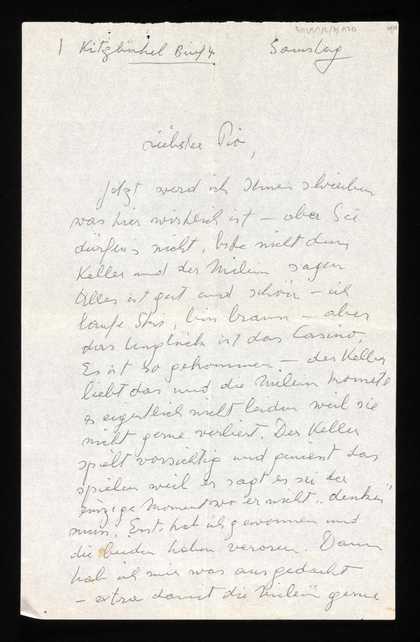 1 Kitzbühel Brief 4 Samstag
Liebster Pio,
Jetzt werd ich Ihnen schreiben
was hier wirklich ist – aber Sie
dürfens nicht, bitte nicht dem
Keller und der Milein sagen
Alles ist gut und schön – ich
laufe Ski, bin braun – aber
das Unglück ist das Casino.
Es ist so gekommen – der Keller
liebt das und die Milein konnte
es eigentlich nicht leiden weil sie
nicht gerne verliert. Der Keller
spielt vorsichtig und geniesst das
spielen weil er sagt es sei der
einzige Moment wo er nicht „denken"
muss. Erst hat ich gewonnen und
die beiden haben verloren. Dann
hab ich mir was ausgedacht
– extra damit die Milein gerne